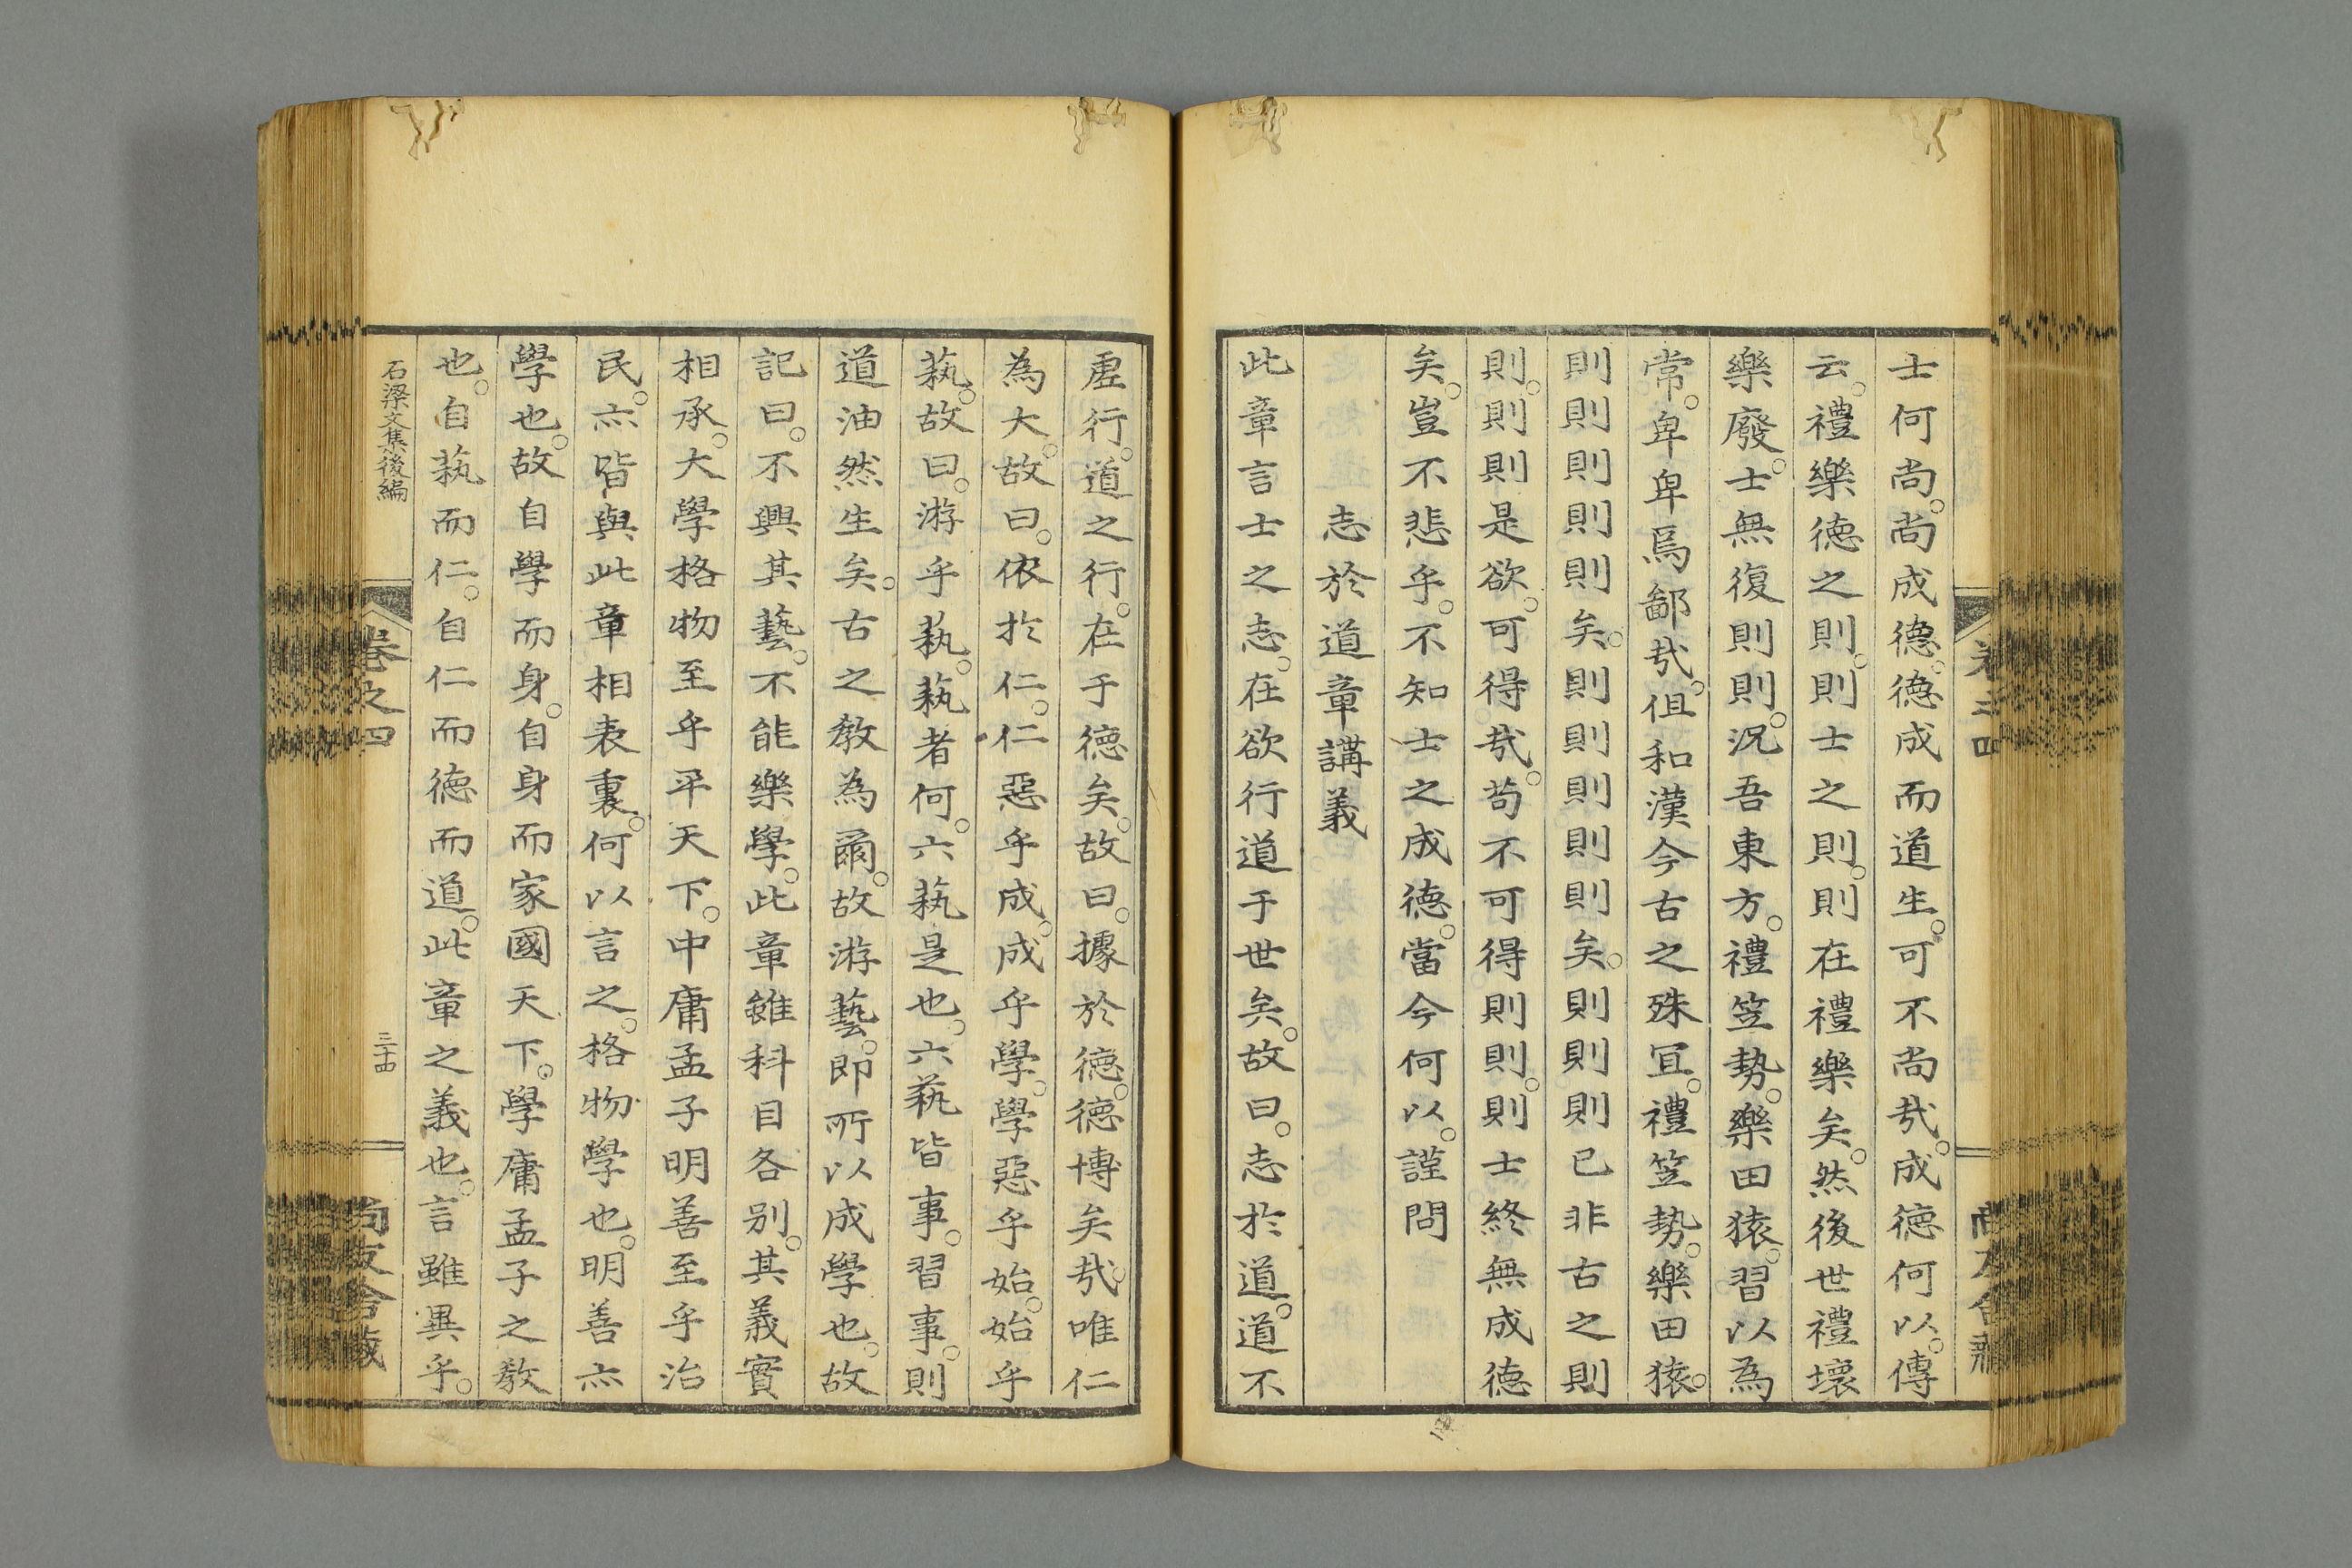 士何尚。尚成德。德成而道生。可不尚哉。成德何以。傳
云。禮樂德之則。則士之則。則在禮樂矣。然後世禮壞
樂廢。士無復則則。況吾東方。禮笠勢。樂田猿。習以為
常。卑卑焉鄙哉。俎和漢今古之殊冝。禮笠勢。樂田猿。
則則則則則矣。則則則則則矣。則則則已非古之則
則。則則是欲。可得哉。苟不可得則則。則士終無成德
矣。豈不悲乎。不知士之成德。當今何以。謹問
志於道章講義
此章言士之志。在欲行道于世矣。故曰。志於道。道不
虛行。道之行。在于德矣。故曰。據於德。德博矣哉。唯仁
為大。故曰。依於仁。仁惡乎成。成乎學。學惡乎始。始乎
蓺。故曰。游乎蓺。蓺者何。六蓺是也。六蓺皆事。習事。則
道油然生矣。古之敎為爾。故游藝。即所以成學也。故
記曰。不興其藝。不能樂學。此章雖科目各別。其義實
相承。大學格物至乎平天下。中庸孟子明善至乎治
民。亦皆與此章相表裏。何以言之。格物學也。明善亦
學也。故自學而身。自身而家國天下。學庸孟子之敎
也。自蓺而仁。自仁而德而道。此章之義也。言雖異乎。
石梁文集後編
卷之四
三十四
尚友舍藏